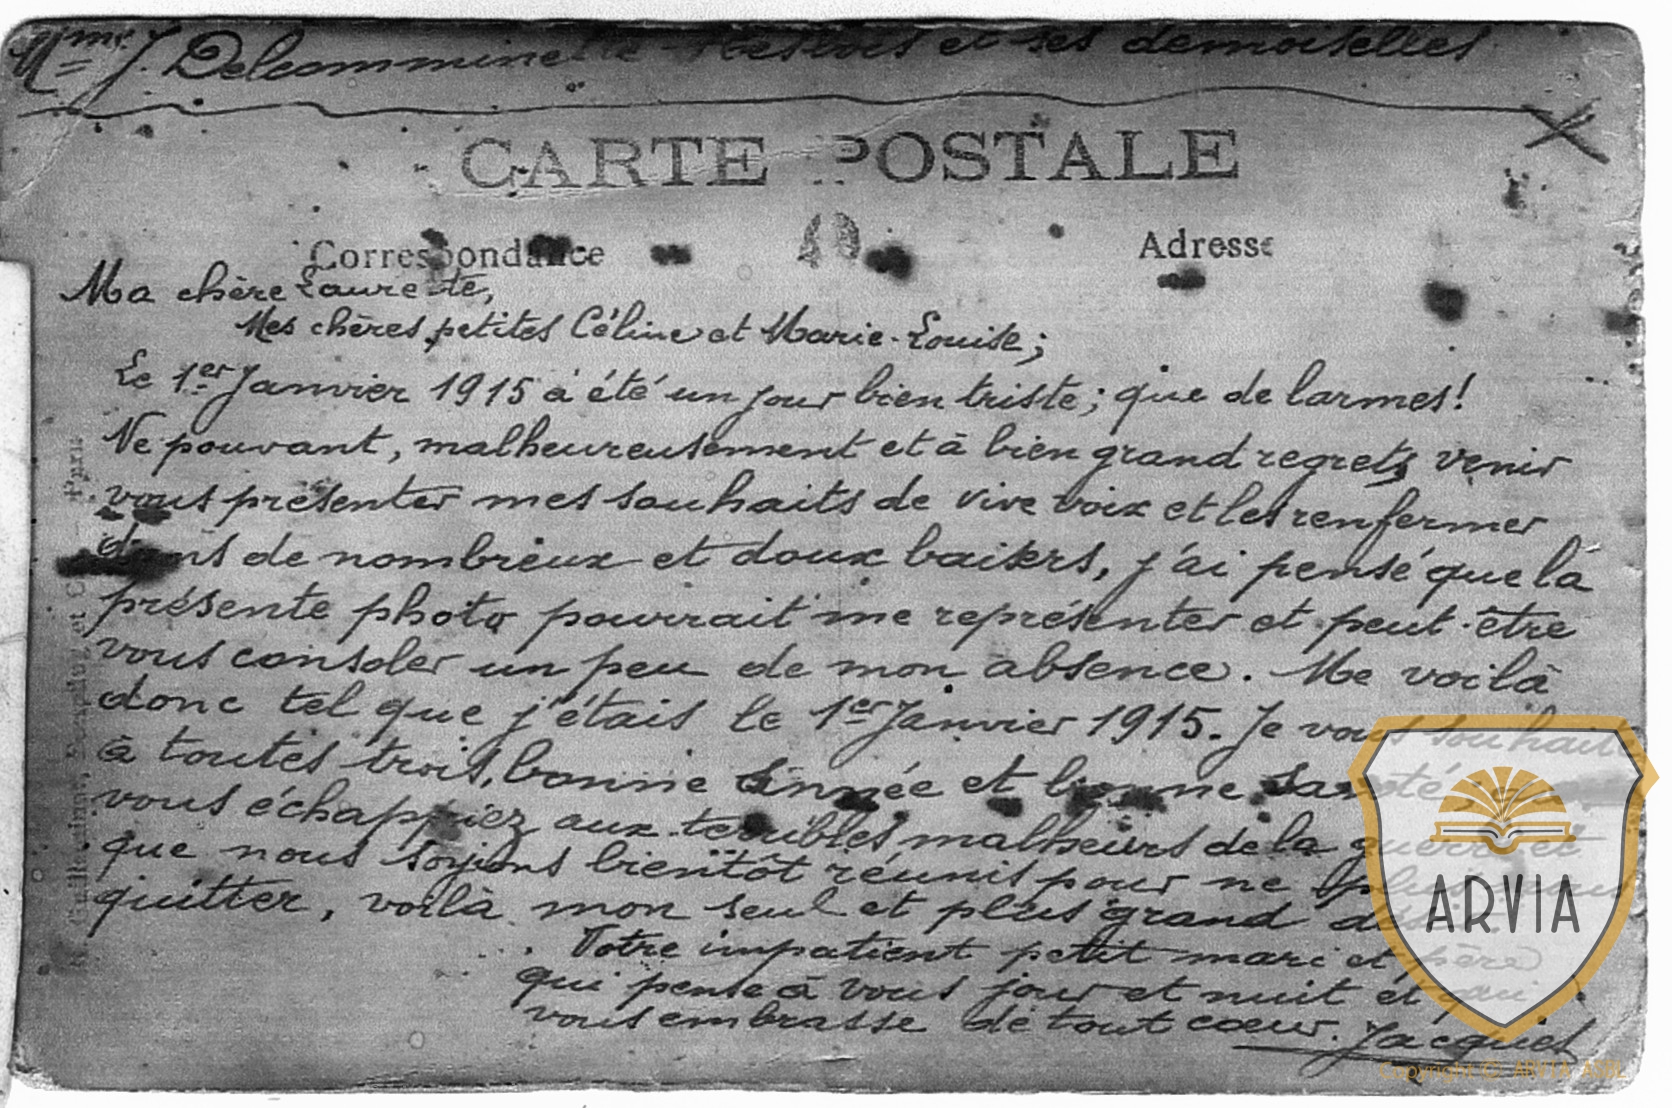 Mme J. Delcomminette-Hestres et ses demoiselles
CARTE POSTALE
Correspondance
Adresse
Ma chère Laurette,
Mes chères petites Céline et Marie-Louise;
Le 1er Janvier 1915 a été un jour bien triste; que de larmes!
Ne pouvant, malheureusement et à bien grand regrets venir
vous présenter mes souhaits de vive voix et les renfermer
dans de nombreux et doux baisers, j'ai pensé que la
présente photo pourrait me représenter et peut-être
vous consoler un peu de mon absence. Me voilà
donc tel que j'étais le 1er Janvier 1915. Je vous souhaite
à toutes trois, bonne année et bonne santé
vous échappiez aux terribles malheurs de la guerre et
que nous soyions bientôt réunis pour ne plus nous
quitter, voilà mon seul et plus grand désir.
Votre impatient petit mari et père
qui pense à vous jour et nuit et qui
vous embrasse de tout cœur. Jacques
ARVIA
Copyright © ARVIA ASBL